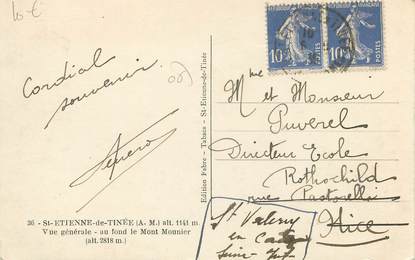 10€
Cordial
souvenir.
Mme et Monsieur
Puverel
Directeur Ecole
Rothschild
rue Pastorelli
Nice
St Valery
en
Seine
Edition Fabre - Tabacs - St-Etienne-de-Tinée
36 - St-ETIENNE-de-TINÉE (A. M.) alt. 1141 m.
Vue générale - au fond le Mont Mounier
(alt. 2818 m.)
10c
POSTES
10c
POSTES